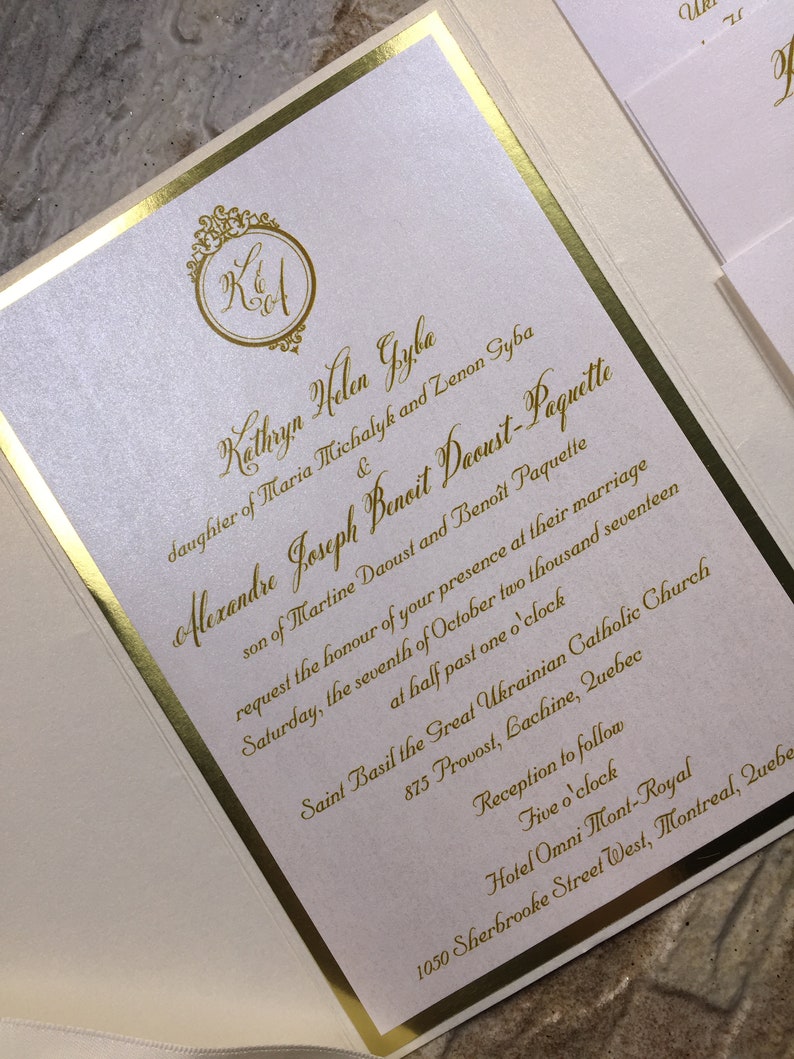 K & A
Kathryn Helen Gyba
daughter of Maria Michalyk and Zenon Gyba
&
Alexandre Joseph Benoit Daoust-Paquette
son of Martine Daoust and Benoît Paquette
request the honour of your presence at their marriage
Saturday, the seventh of October two thousand seventeen
at half past one o'clock
Saint Basil the Great Ukrainian Catholic Church
875 Provost, Lachine, Quebec
Reception to follow
Five o'clock
Hotel Omni Mont-Royal
1050 Sherbrooke Street West, Montreal, Quebec